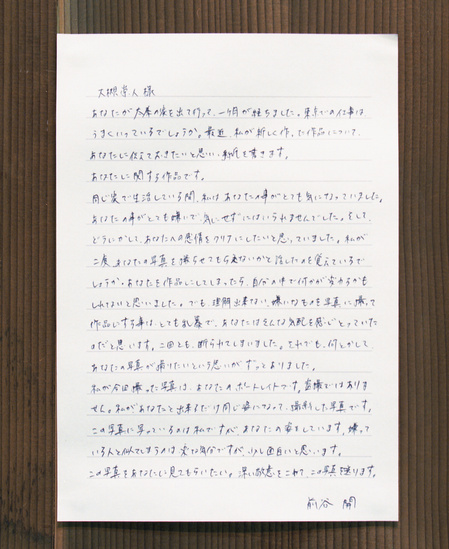 大槻学人様
あなたが太秦の家を出て行って、一ヶ月が経ちました。東京での仕事は
うまくいっているでしょうか。最近、私が新しく作った作品について、
あなたに伝えておきたいと思い、手紙を書きます。
あなたに関する作品です。
同じ家で生活している間、私はあなたの事がとても気になっていました。
あなたの事がとても嫌いで、気にせずにはいられませんでした。そして、
どうにかして、あなたへの感情をクリアにしたいと思っていました。私が
二度、あなたの写真を撮らせてもらえないかと話したのを覚えているで
しょうか。あなたを作品にしてしまったら、自分の中で何かが変わるかも
しれないと思いました。でも、理解出来ない嫌いなものを写真に撮って
作品にする事は、とても乱暴で、あなたはそんな気配を感じとっていた
のだと思います。二回とも、断られてしまいました。それでも、何とかして、
あなたの写真が撮りたいという思いがずっとありました。
私が今回撮った写真は、あなたのポートレイトです。盗撮ではありま
せん。私があなたと出来るだけ同じ姿になって、撮影した写真です。
この写真に写っているのは私ですが、あなたの姿をしています。嫌って
いる人と似てしまうのは変な気分ですが、少し面白いと思います。
この写真をあなたに見てもらいたい。深い敬意をこめて、この写真を送ります。
前谷 開